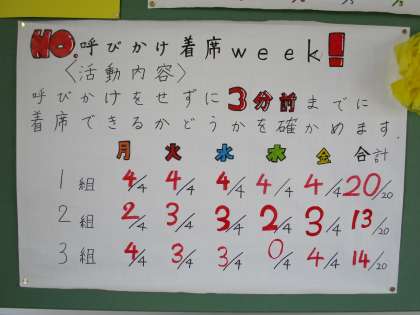 NO.呼びかけ着席week!
〈活動内容〉
呼びかけをせずに3分前までに
着席できるかどうかを確かめます.
月 火 水 木 金 合計
1組 4/4 4/4 4/4 4/4 4/4 20/20
2組 2/4 3/4 3/4 2/4 3/4 13/20
3組 4/4 3/4 3/4 0/4 4/4 14/20